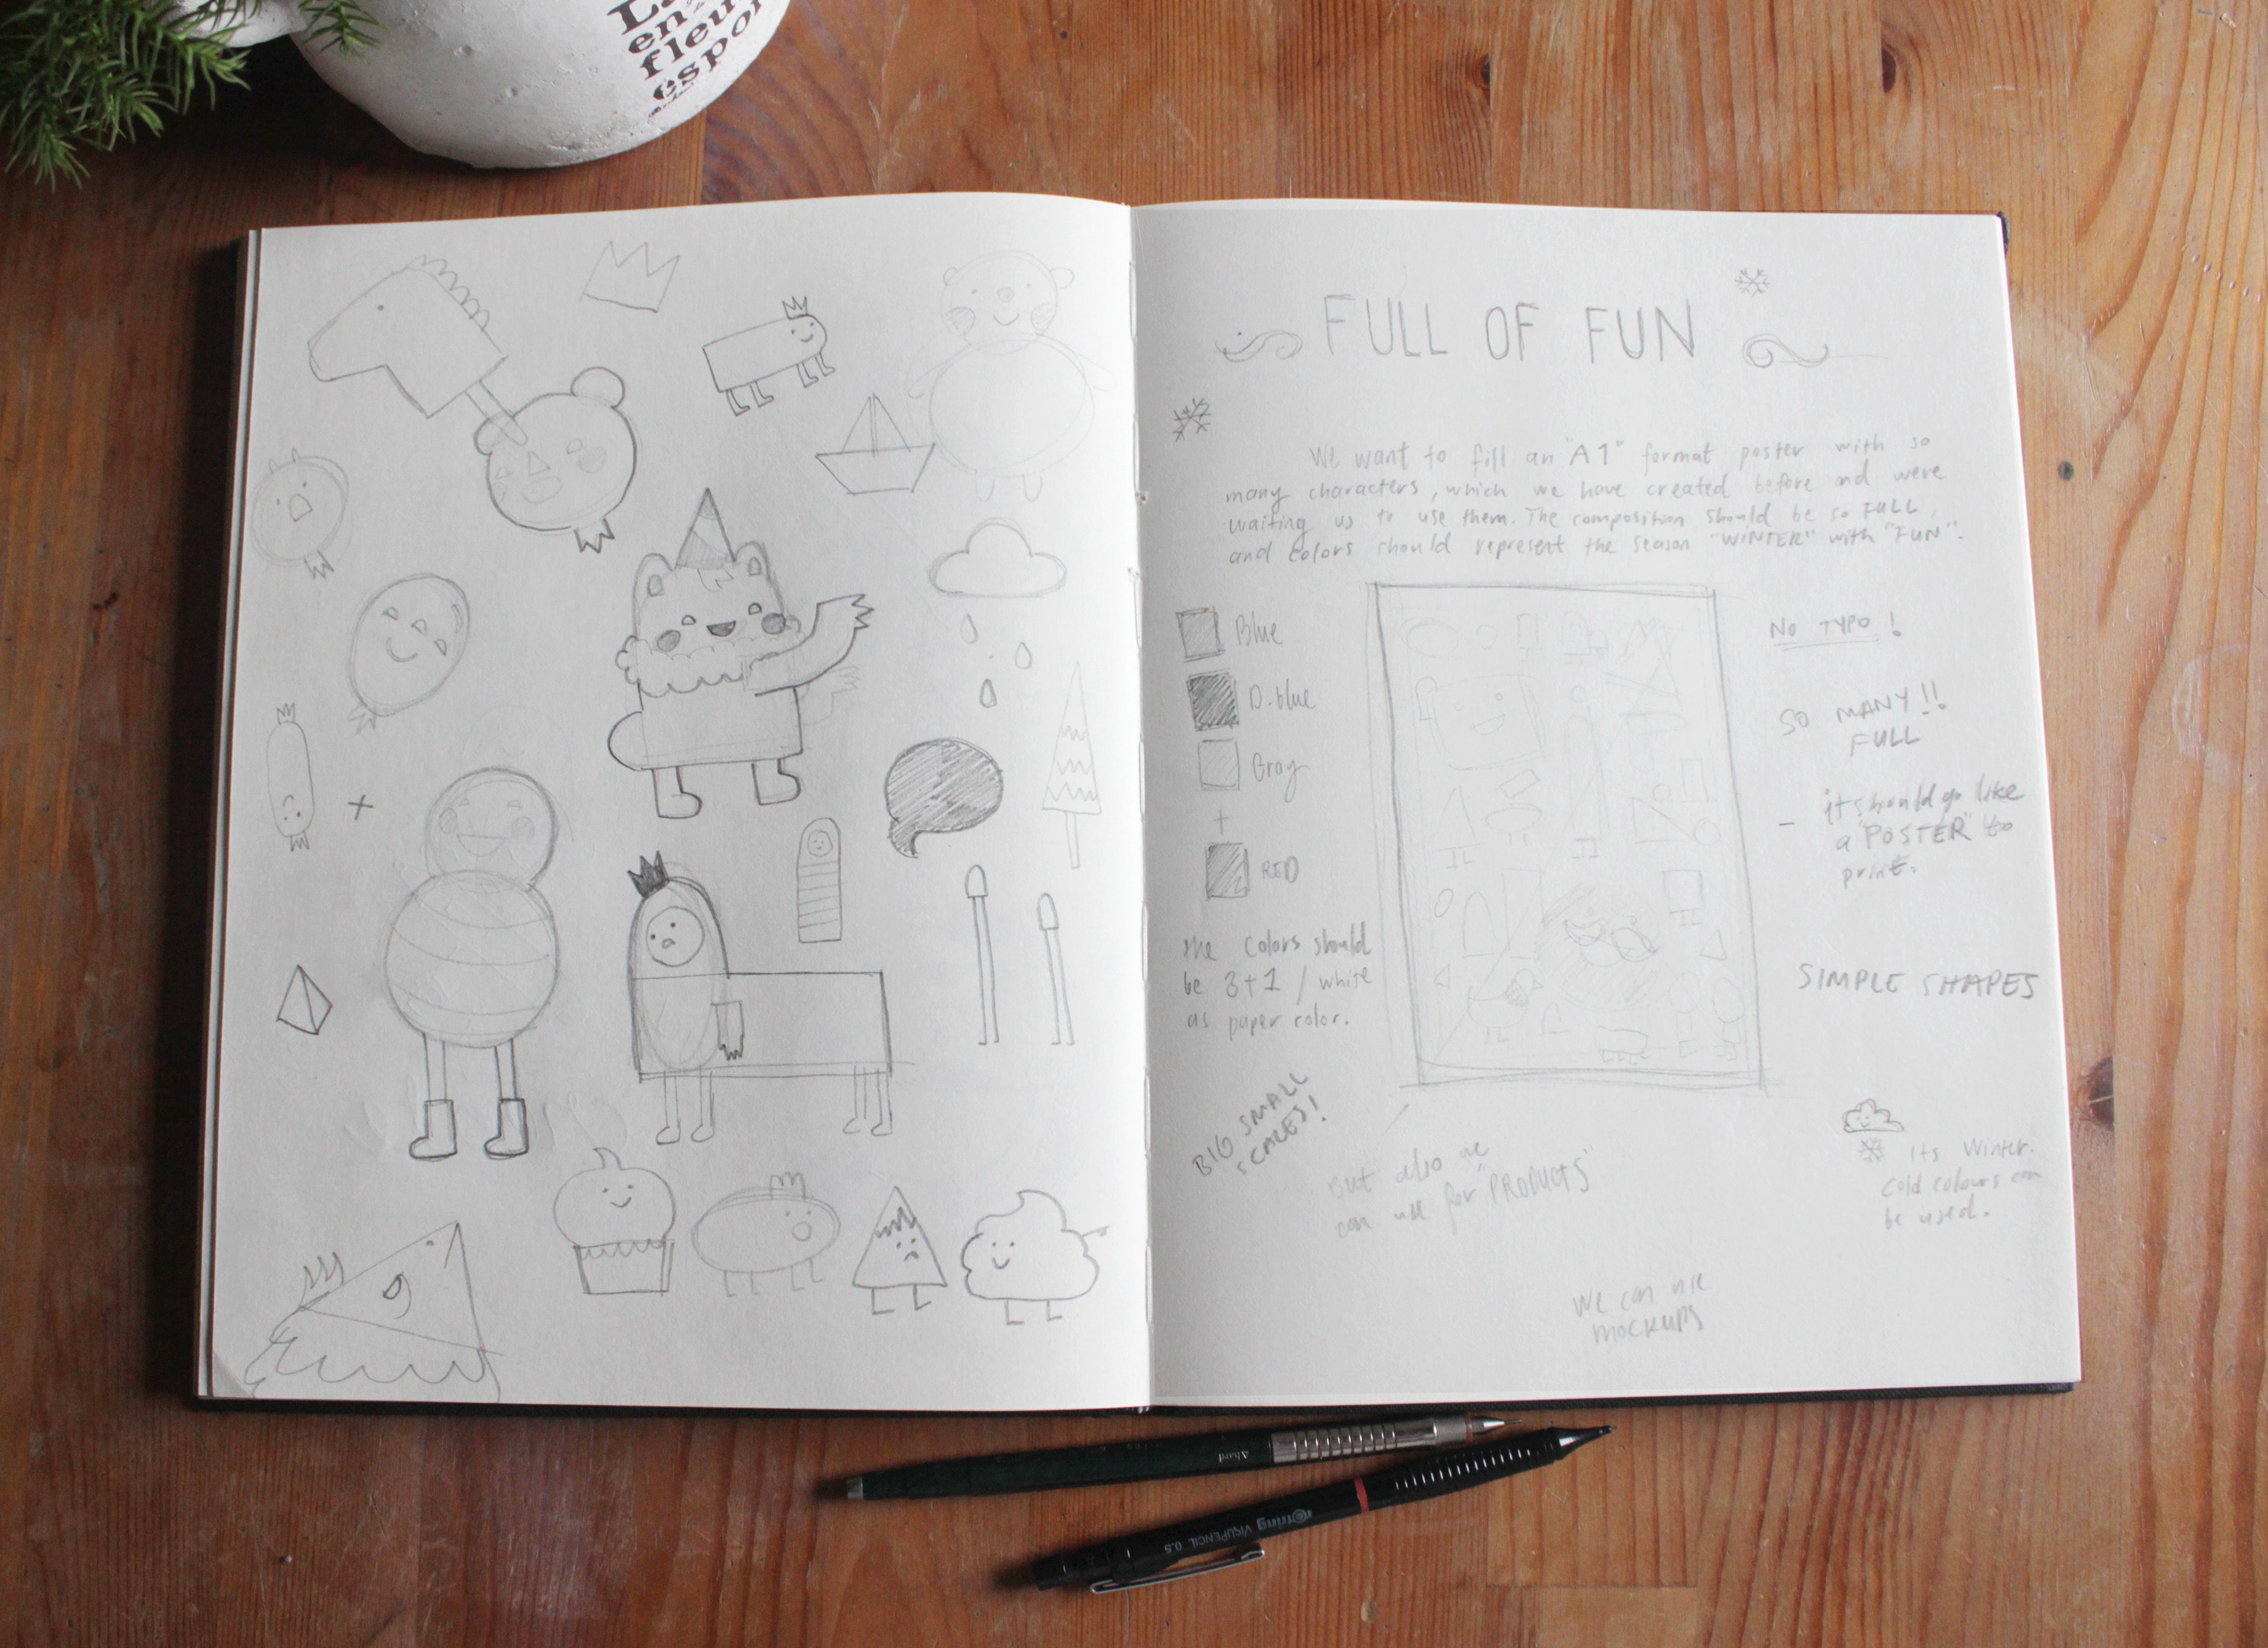 en
fleu
espor
FULL OF FUN
We want to fill an "A1" format poster with so
many characters, which we have created before and were
waiting us to use them. The composition should be so FULL,
and colors should represent the season "WINTER" with "FUN".
Blue
D-blue
Gray
+
RED
the colors should
be 3+1 / white
as paper color.
BIG SMALL
SCALES!
NO TYPO!
SO MANY!!
FULL
- it should go like
a "POSTER" to
print.
SIMPLE SHAPES
Its Winter.
Cold colours can
be used.
But also we
can use for "PRODUCTS"
We can use
mockups
rotring VISUPENCIL 0.5